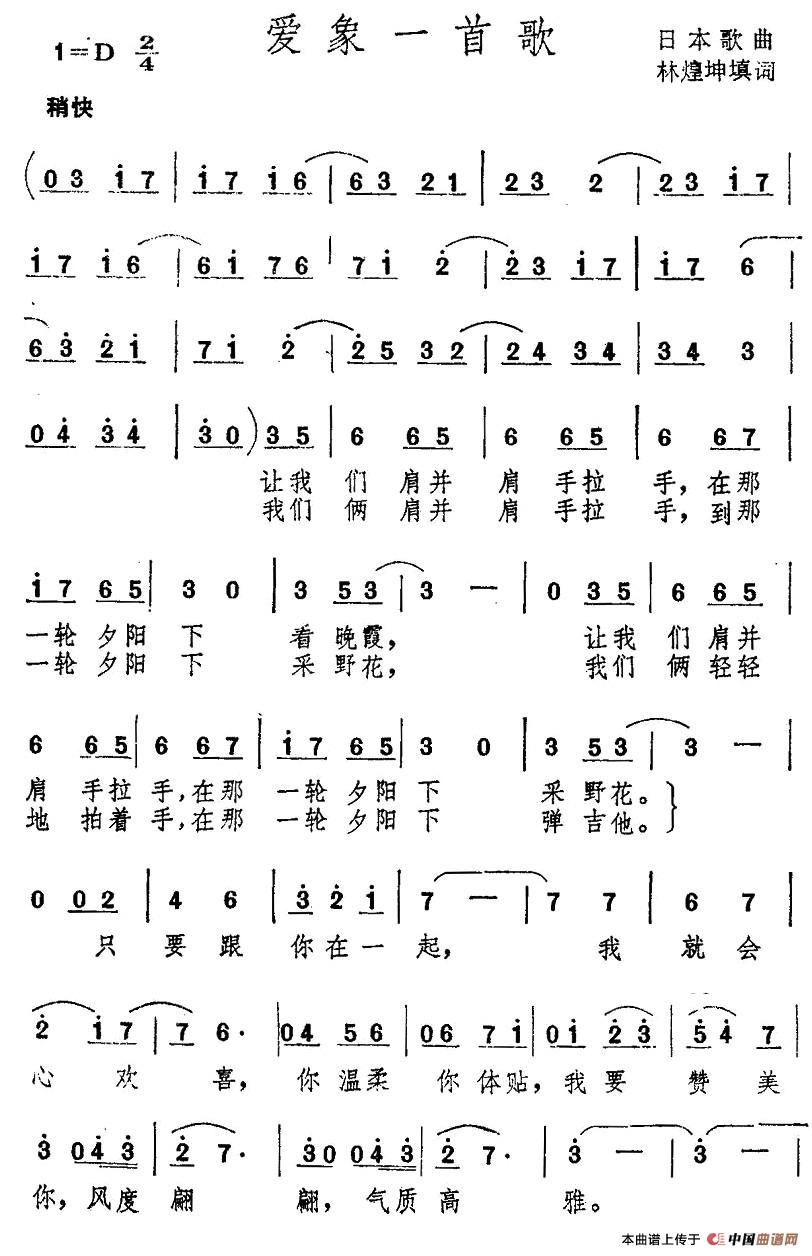 爱象一首歌
1=D 2/4
日本歌曲
林煌坤填词
稍快
(03 i7 | i7 i6 | 63 21 | 23 2 | 23 i7 |
i7 i6 | 6i 76 | 7i 2̇ | 2̇3 i7 | i7 6 |
63̇ 2̇i | 7i 2̇ | 2̇5 32 | 24 34 | 34 3 |
04̇ 3̇4̇ | 3̇0) 35 | 6 65 | 6 65 | 6 67 |
让我 们 肩并 肩 手拉 手，在那
我们 俩 肩并 肩 手拉 手，到那
i7 65 | 3 0 | 3 53 | 3 — | 0 35 | 6 65 |
一轮 夕阳 下 看 晚霞， 让我 们 肩并
一轮 夕阳 下 采 野花， 我们 俩 轻轻
6 65 | 6 67 | i7 65 | 3 0 | 3 53 | 3 —
肩 手拉 手，在那 一轮 夕阳 下 采 野花。
地 拍着 手，在那 一轮 夕阳 下 弹 吉他。
0 02 | 4 6 | 3̇ 2̇ i | 7 — | 7 7 | 6 7
只 要 跟 你 在 一 起， 我 就 会
2̇ i7 | 7 6· | 04 56 | 06 7i | 0i 2̇3̇ | 5̇4̇ 7
心 欢 喜， 你 温柔 你 体贴，我 要 赞 美
3̇ 04̇3̇ | 2̇ 7· | 3̇0 04̇3̇ | 2̇ 7· | 3̇ — | 3̇ —
你，风度 翩 翩，气质 高 雅。
本曲谱上传于 中国曲谱网